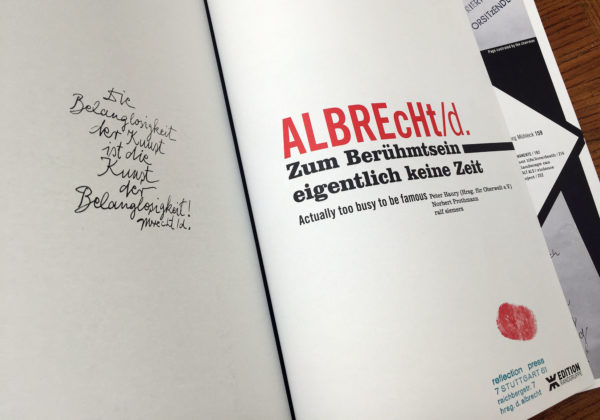 Die
Belanglosigkeit
der Kunst
ist die
Kunst
der
Belanglosigkeit!
Albrecht/d.
ALBREcHt/d.
Zum Berühmtsein
eigentlich keine Zeit
Actually too busy to be famous
Peter Haury (Hrsg. für Oberwelt e.V)
Norbert Prothmann
ralf siemers
reflection press
7 STUTTGART 61
reichbergstr. 7
hrsg. d. albrecht
EDITION
RANDGRUPPE
ORSITZENDU
Page restricted by the chairman
Mühleck 159